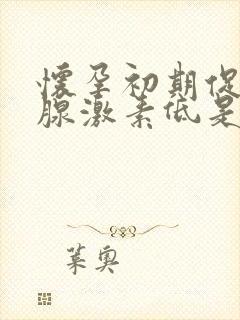 懷孕初期促
腺激素低是
葉奧